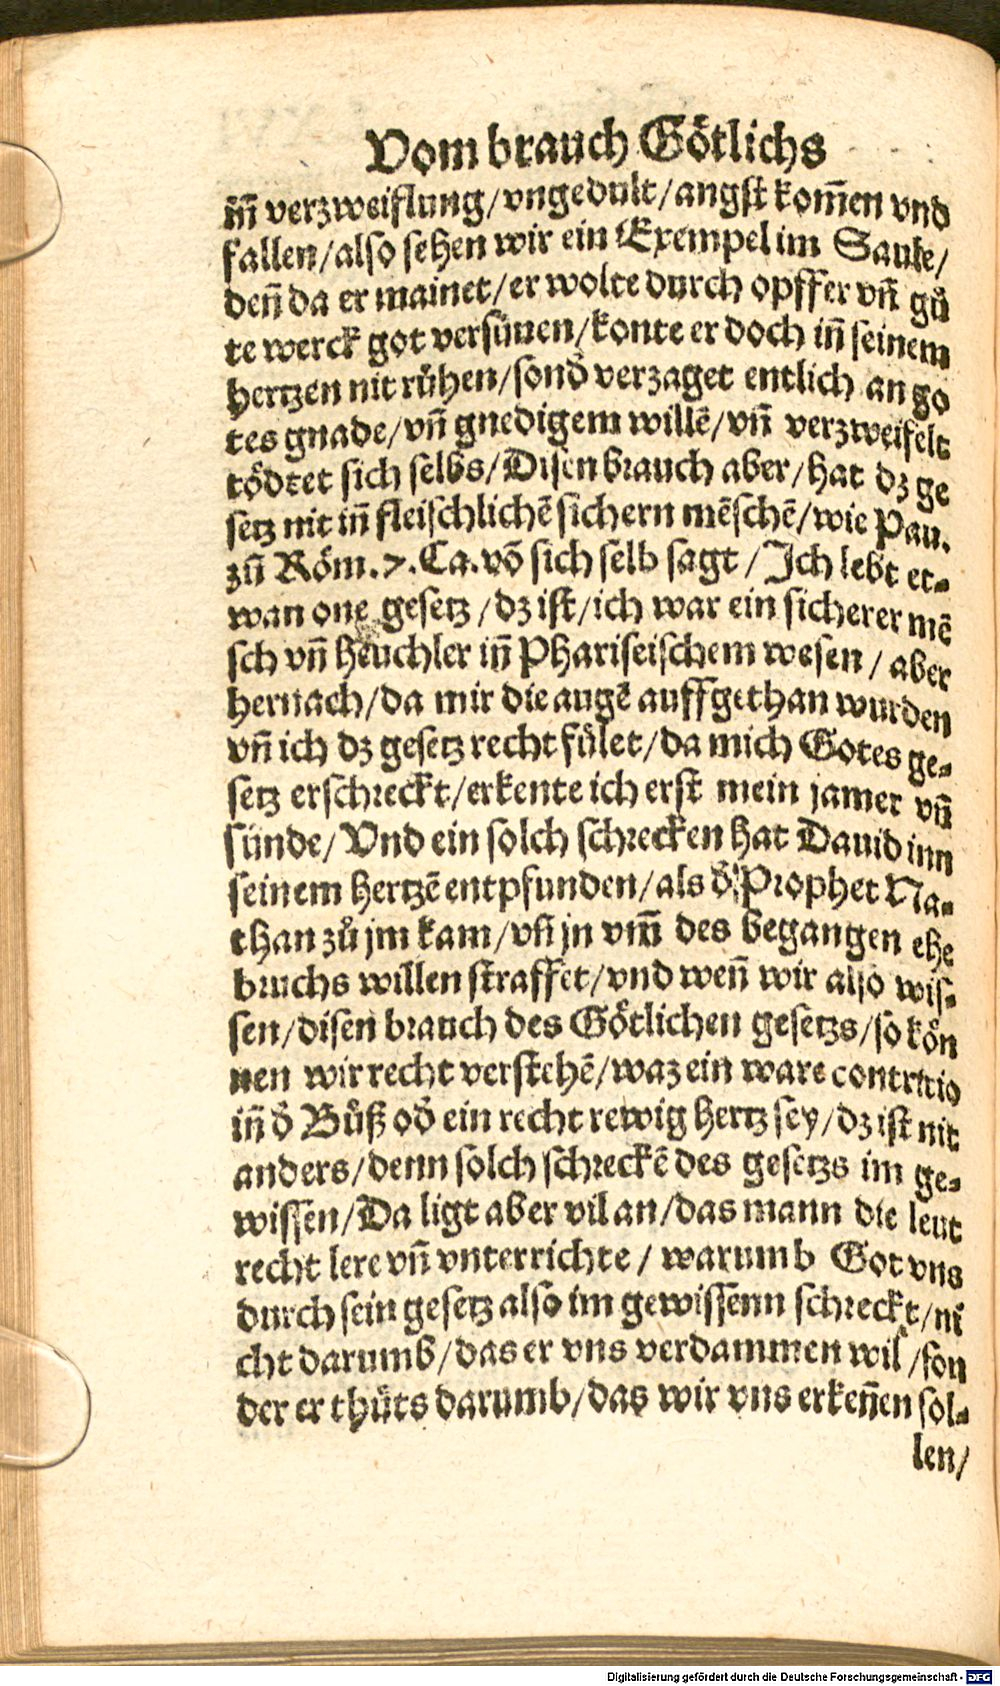 Vom brauch Götlichs
in̄ verzweiflung/vngedult/angst kom̄en vnd
fallen/also sehen wir ein Exempel im Saule/
den̄ da er mainet/er wolte durch opffer vn̄ gů
te werck got versünen/konte er doch in̄ seinem
hertzen nit růhen/sond̕ verzaget entlich an go
tes gnade/vn̄ gnedigem willē/vn̄ verzweifelt
tödtet sich selbs/Disen brauch aber/hat dz ge
setz nit in̄ fleischlichē sichern mēschē/wie Pau.
zů Röm.7.Ca.vō sich selb sagt/Ich lebt et-
wan one gesetz/dz ist/ich war ein sicherer mē
sch vn̄ heuchler in̄ Phariseischem wesen/aber
hernach/da mir die augē auffgethan wurden
vn̄ ich dz gesetz recht fület/da mich Gotes ge-
setz erschreckt/erkente ich erst mein jamer vn̄
sünde/Vnd ein solch schrecken hat Dauid inn
seinem hertzē entpfunden/als d̕ Prophet Na-
than zů jm kam/vn̄ jn vm̄ des begangen ehe
bruchs willen straffet/vnd wen̄ wir also wis-
sen/disen brauch des Götlichen gesetzs/so kön
nen wir recht verstehē/waz ein ware contritio
in̄ d̕ Bůß od̕ ein recht rewig hertz sey/dz ist nit
anders/denn solch schreckē des gesetzs im ge-
wissen/Da ligt aber vil an/das mann die leut
recht lere vn̄ vnterrichte/warumb Got vns
durch sein gesetz also im gewissenn schreckt/ni
cht darumb/das er vns verdammen wil/son
der er thůts darumb/das wir vns erken̄en sol-
len/
Digitalisierung gefördert durch die Deutsche Forschungsgemeinschaft - DFG